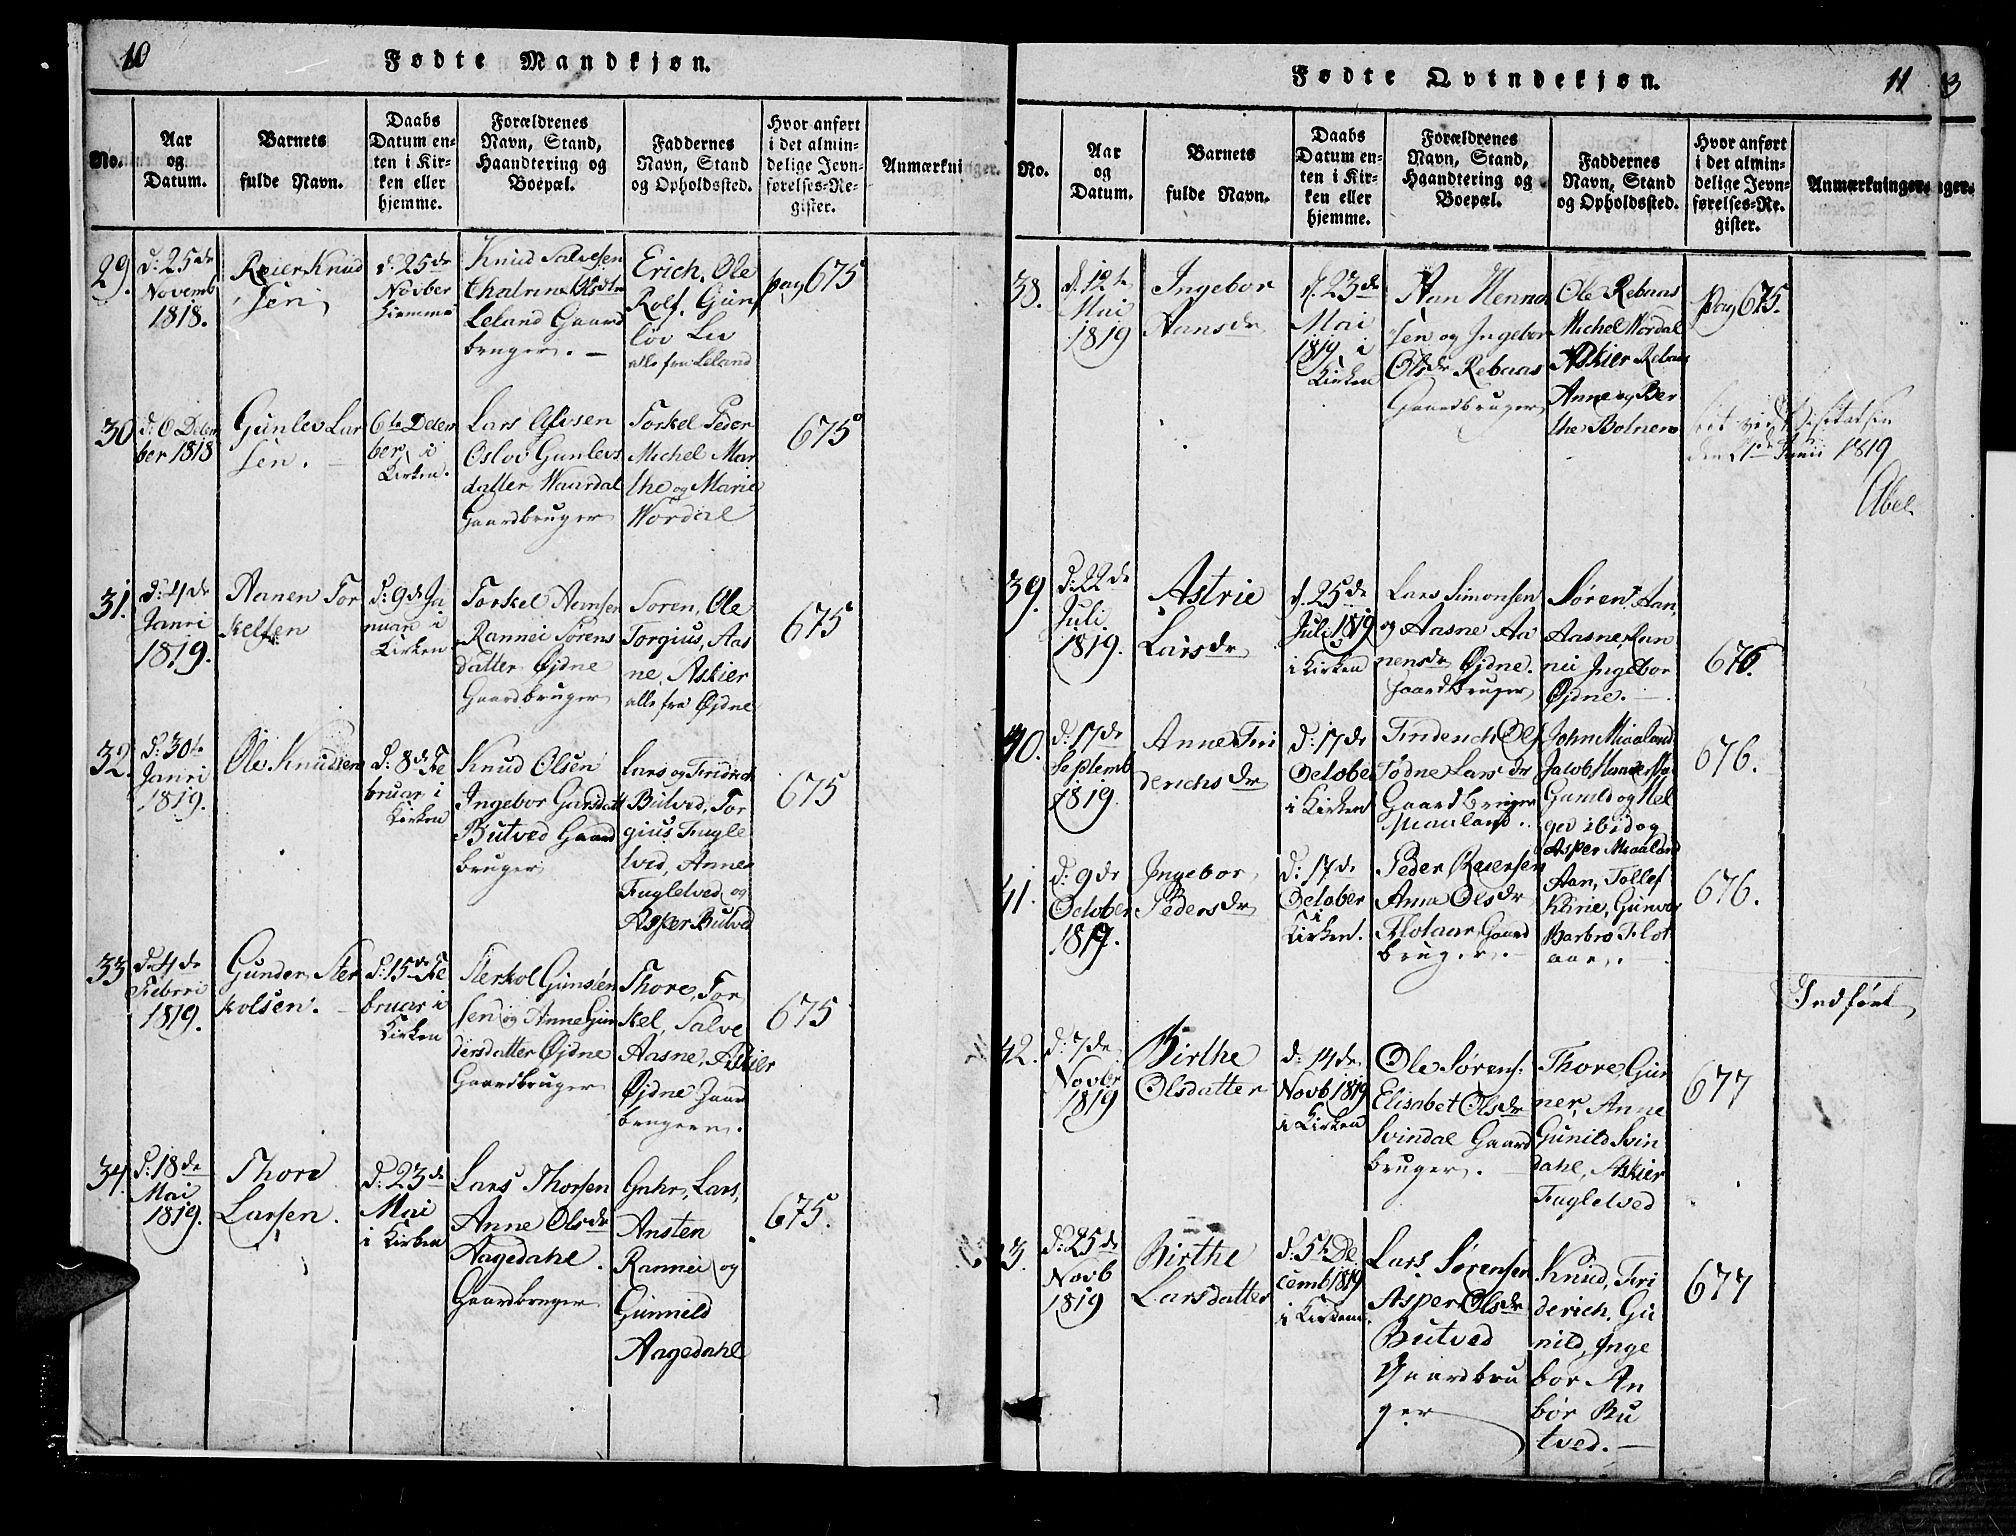 10
Fødte Mandkjøn.
No.
Aar
og
Datum.
Barnets
fulde Navn.
Daabs
Datum en-
ten i Kir-
ken eller
hjemme.
Forældrenes
Navn, Stand,
Haandtering og
Boepæl.
Faddernes
Navn, Stand
og Opholdssted.
Hvor anført
i det almin-
delige Jevn-
førelses-Re-
gister.
Anmærkninger.
29.
d: 25de
Novemb
1818.
Reier Knud
sen
d: 25de
Novber
hiemme
Knud Salvesen
Leland Gaard
bruger. —
Erich, Ole
Rolf, Gun
løv Liv
alle fra Leland
pag 675
30
d: 6 Decem
ber 1818
Gunlev Lar
sen. —
6te Decem
ber i
Kirken.
Lars Olvsen
Oslov Gunlevs
datter Waardal
Gaardbruger
Torkel Peder
Michel Mar
the og Marie
Wordal
675
31.
d: 4de
Janri
1819.
Aanen Tor
kelsen
d: 9de Ja
nuar i
Kirken
Torkel Aansen
Rannei Sørens
datter Øjdne
Gaardbruger
Soren, Ole
Torgius, Aas
ne, Askier
alle fra Øjdne
675
32.
d: 30te
Janri
1819.
Ole Knudsen
d: 8de Fe
bruar i
Kirken
Knud Olsen
Ingebor Garsdatt
Butved Gaard
bruger
Lars og Fridrich
Butved, Tor
gius Fugle
tved, Anne
Fugletved og
Asper Butved
675
33
d: 4de
Febrri
1819.
Gunder Ster
kolsen. —
d: 15de Fe
bruar i
Kirken
Sterkol Gunsten
sen og Anne Gun
dersdatter Øjdne
Gaardbruger
Thore, Tor
kel, Salve
Aasne, Askier
Øjdne Gaard
brugere.
675
34.
d: 18de
Mai
1819.
Thore
Larsen.
d: 23de
Mai
i Kirken
Lars Thorsen
Anne Olsdr
Aagedahl.
Gaardbruger
Guhr, Lars,
Ansten
Rannei og
Gunnild
Aagedahl
675.
Fødte Qvindekjøn.
11
3
No.
Aar
og
Datum.
Barnets
fulde Navn.
Daabs
Datum en-
ten i Kir-
ken eller
hjemme.
Forældrenes
Navn, Stand,
Haandtering og
Boepæl.
Faddernes
Navn, Stand
og Opholdssted.
Hvor anført
i det almin-
delige Jevn-
førelses-Re-
gister.
Anmærkninger.
38.
d. 12te
Mai
1819
Ingebor
Aansdr
d. 23de
Mai
1819 i
Kirken
Aan Henno
sen og Ingebor
Olsdr Rebaas
Gaardbruger
Ole Rebaas
Michel Wordal
Askier Rebaas
Anne og Ber
the Bolnero
Pag 675.
den 1de Junii 1819
Abel
39.
d: 22de
Juli
1819.
Astrie
Larsdr
d. 25de
Juli 1819
i Kirken
Lars Simonsen
og Aasne Aa
nensdr Øjdne.
Gaardbruger
Søren, Aan,
Aasne, Ran
nei Ingebor
Øjdne. —
676.
40.
d: 17de
Septemb
1819.
Anne Fri
derichsdr
d: 17de
October
i Kirken
Friderich Ols
Tødne Larsdr
Gaardbruger
Miaaland.
John Miaaland
Gunild og Hel
ged ibid og
Asper Miaaland
676.
41.
d: 9de
October
1819.
Ingebor
Pedersdr
d: 17de
October
i
Kirken.
Peder Reiersen
Anna Olsdr
Flotaar Gaard
bruger. —
Aan, Tollef
Karie, Gunvor
Barbro Flot
aar.
676.
Indført
42.
d: 7de
Novbr
1819
Birthe
Olsdatter
d: 14de
Novb 1819
i Kirken
Ole Sørens.
Elisabet Olsdr
Svindal Gaard
bruger. —
Thore, Gun
ner, Anne
Gunild Svin
dahl, Askier
Fugletved
677
43.
d: 25de
Novb
1819
Birthe
Larsdatter
d: 5te De
cemb 1819
i Kirken
Lars Sørensen
Asper Olsdr
Butved
Gaardbru
ger
Knud, Fri
derich, Gu
nild, Inge
bor An
bør Bu
tved. —
677